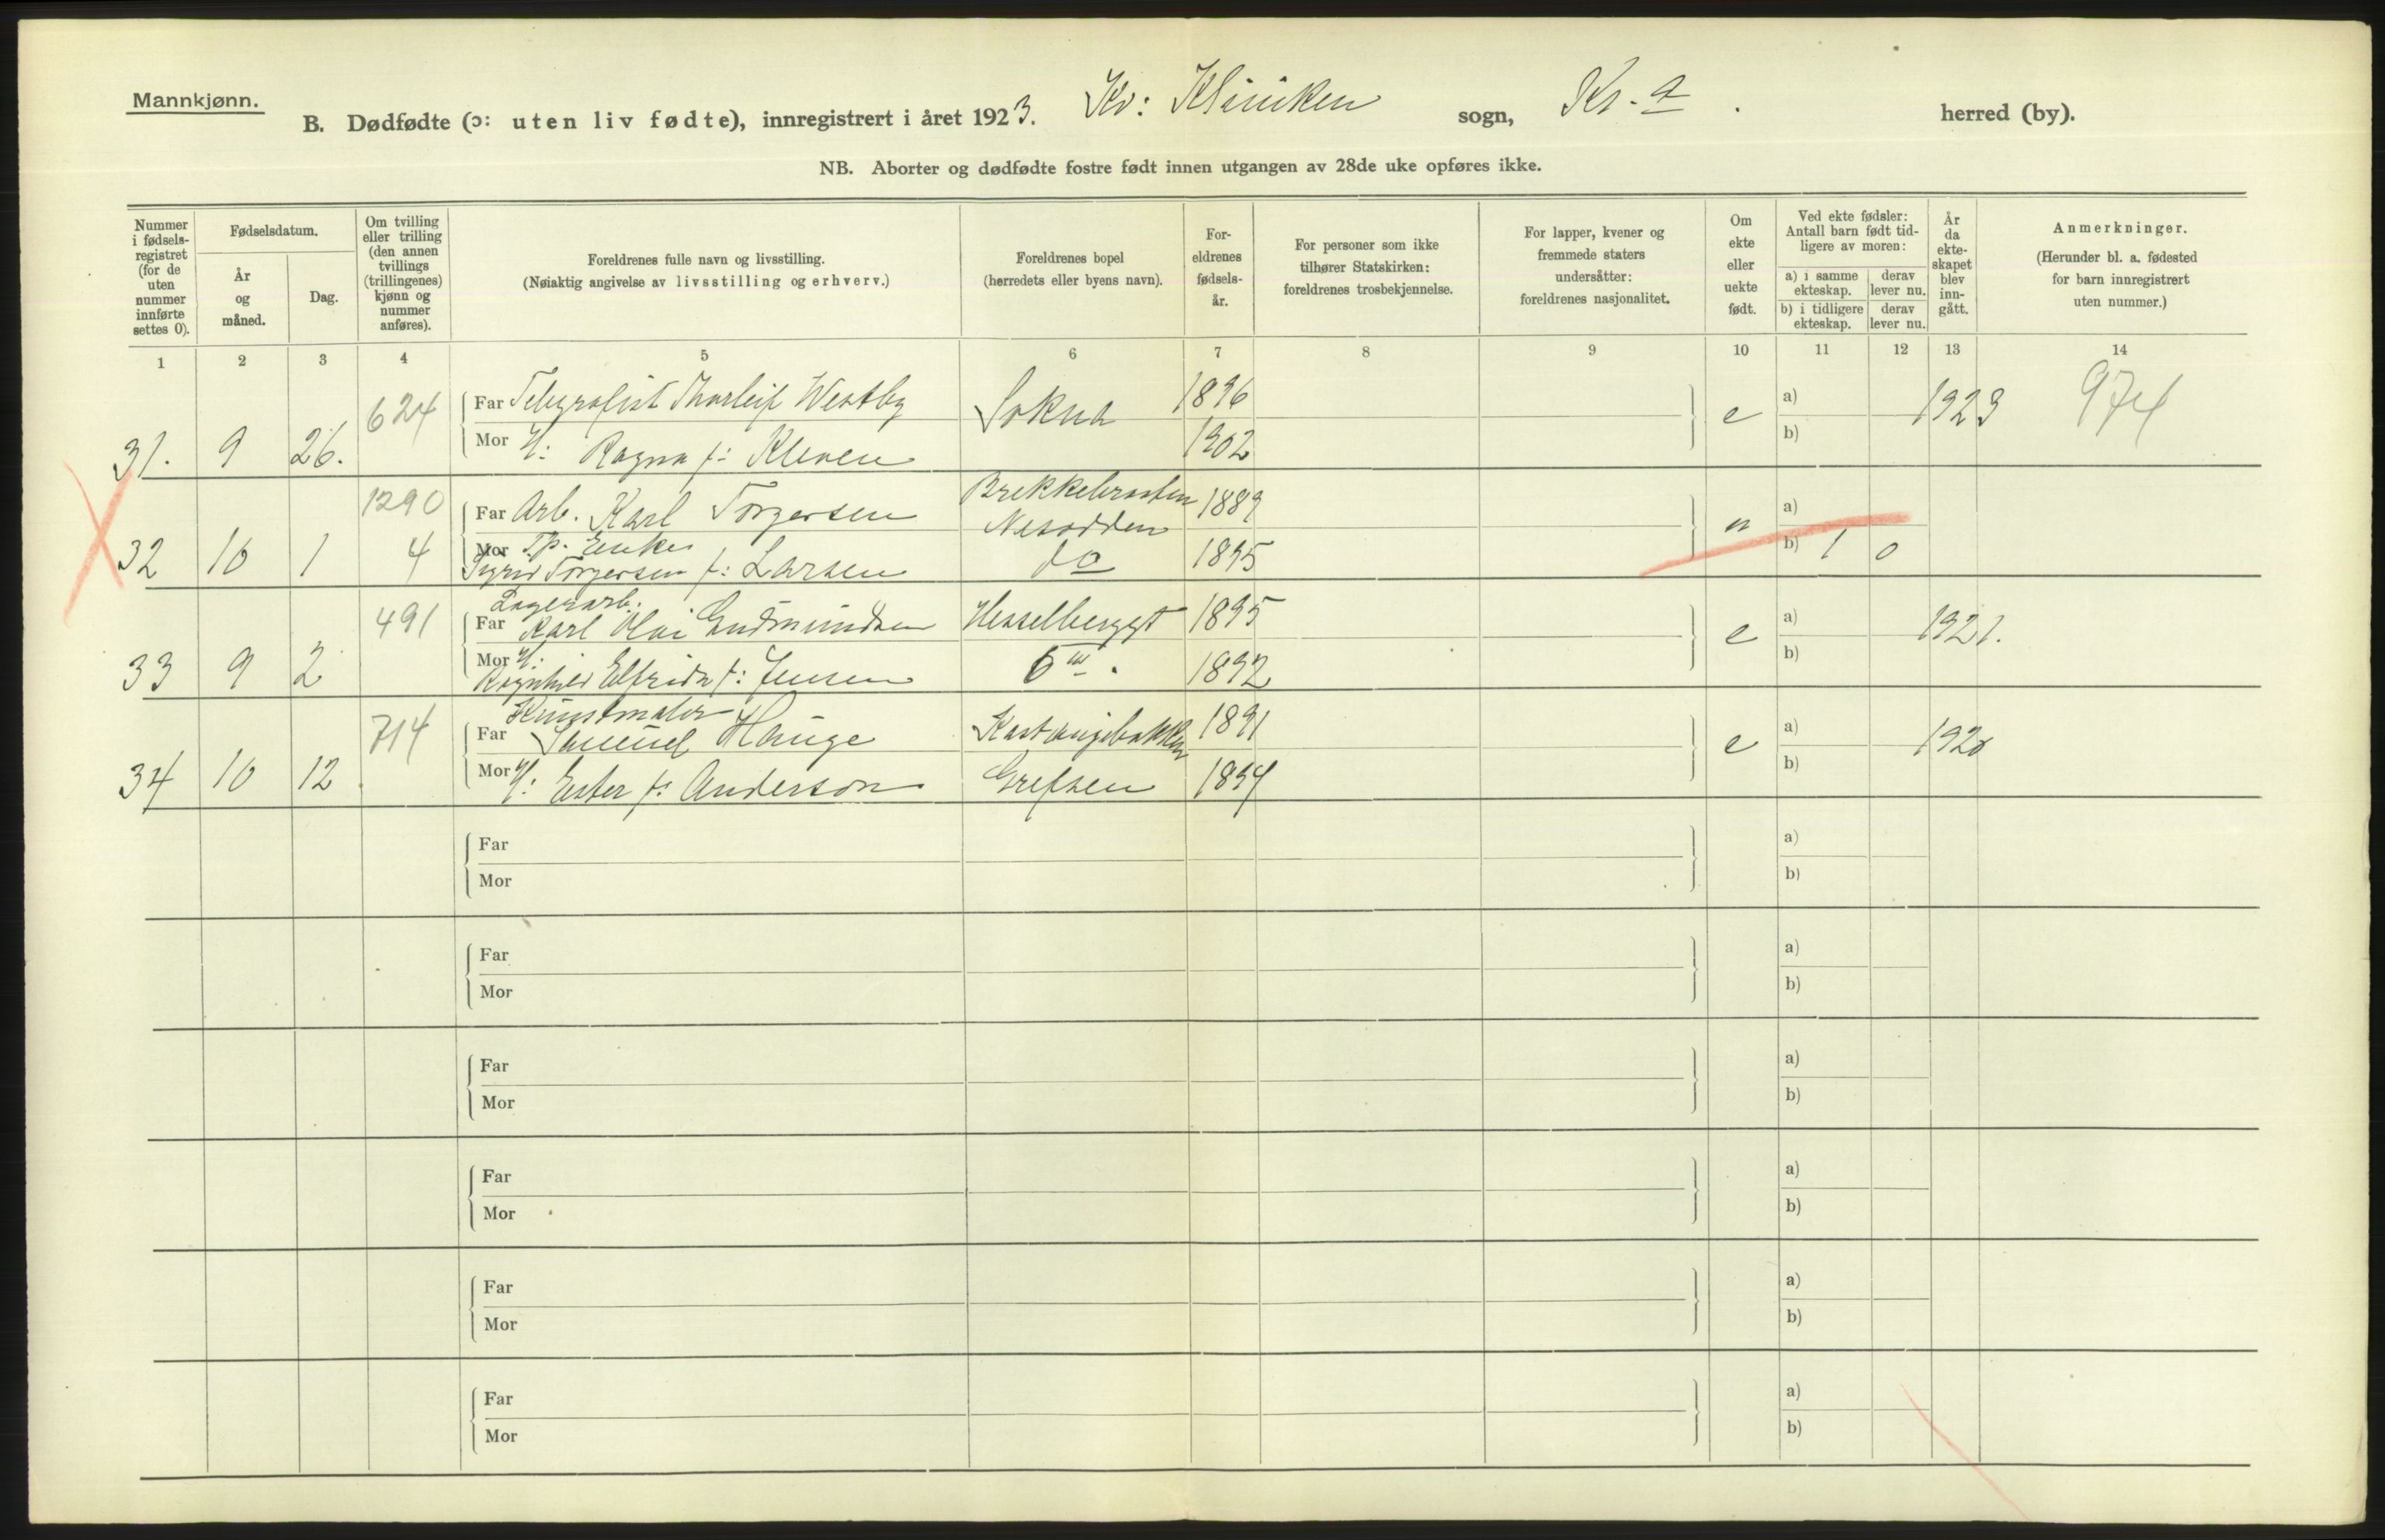 Mannkjønn.
B. Dødfødte (ɔ: uten liv fødte), innregistrert i året 1923. Kv: Kliniken sogn, Kr.a. herred (by).
NB. Aborter og dødfødte fostre født innen utgangen av 28de uke opføres ikke.
Nummer i fødsels-registret (for de uten nummer innførte settes 0).
Fødselsdatum.
År og måned.
Dag.
Om tvilling eller trilling (den annen tvillings (trillingenes) kjønn og nummer anføres).
Foreldrenes fulle navn og livsstilling.
(Nøiaktig angivelse av livsstilling og erhverv.)
Foreldrenes bopel
(herredets eller byens navn).
For-eldrenes fødsels-år.
For personer som ikke tilhører Statskirken: foreldrenes trosbekjennelse.
For lapper, kvener og fremmede staters undersåtter: foreldrenes nasjonalitet.
Om ekte eller uekte født.
Ved ekte fødsler: Antall barn født tid-ligere av moren:
a) i samme ekteskap. derav lever nu.
b) i tidligere ekteskap. derav lever nu.
År da ekte-skapet blev inn-gått.
Anmerkninger.
(Herunder bl. a. fødested for barn innregistrert uten nummer.)
1 2 3 4 5 6 7 8 9 10 11 12 13 14
624 Far Telegrafist Thorleif Westby Sokna 1896 e a) 1923 974
31. 9 26. Mor H: Ragna f: Kleven 1902 b)
1290 Far Arb. Karl Torgersen Brekkebraaten Nesodden 1889 u a)
32 10 1 4 Mor Enke
Sigrid Torgersen f: Larsen do 1895 b) 1 0
Lagerarb.
491 Far Karl Olai Gudmundsen Hesselberggt 1895 e a) 1921.
33 9 2 Mor H:
Ragnhild Elfrida f: Jensen 6 III. 1892 b)
Kunstmaler
714 Far Samuel Hauge Kastanjebakken 1891 e a) 192
34 10 12 Mor H: Ester f: Anderson Grefsen 1894 b)
Far a)
Mor b)
Far a)
Mor b)
Far a)
Mor b)
Far a)
Mor b)
Far a)
Mor b)
Far a)
Mor b)